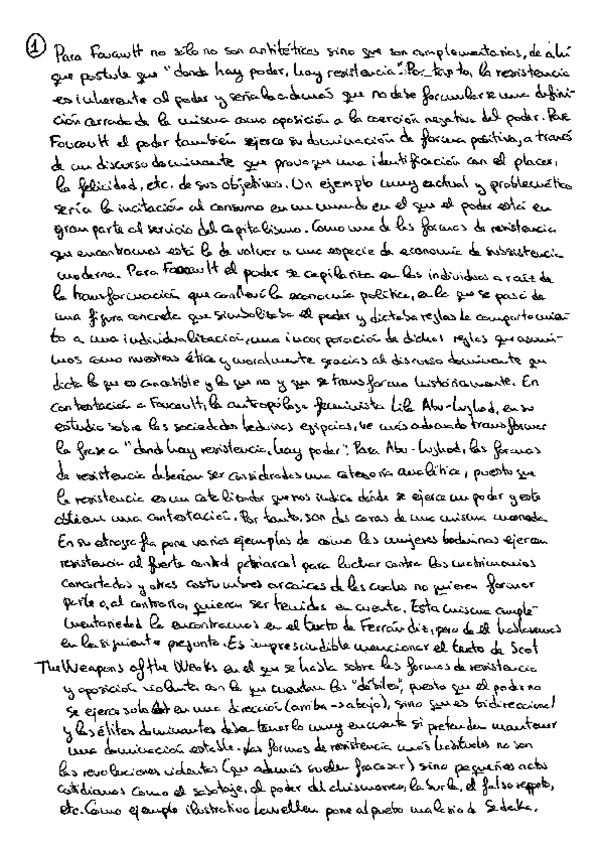 ① Para Foucault no sólo no son antitéticos sino que son complementarios, de ahí
que postule que "donde hay poder, hay resistencia". Por tanto, la resistencia
es inherente al poder y señala además que no debe formularse una defini-
ción cerrada de la misma como oposición a la coerción negativa del poder. Para
Foucault el poder también ejerce su dominación de forma positiva, a través
de un discurso dominante que provoque una identificación con el placer,
la felicidad, etc. de sus objetivos. Un ejemplo muy actual y problemático
sería la incitación al consumo en un mundo en el que el poder está en
gran parte al servicio del capitalismo. Como una de las formas de resistencia
que encontramos está la de volver a una especie de economía de subsistencia
moderna. Para Foucault el poder se capilariza en los individuos a raíz de
la transformación que conllevó la economía política, en la que se pasó de
una figura concreta que simbolizaba el poder y dictaba reglas de comportamien-
to a una individualización, una incorporación de dichas reglas que asumi-
mos como nuestras ética y moralmente gracias al discurso dominante que
dicta lo que es concebible y lo que no y que se transforma históricamente. En
contestación a Foucault, la antropóloga feminista Lila Abu-Lughod, en su
estudio sobre las sociedades beduinas egipcias, ve más adecuado transformar
la frase a "donde hay resistencia, hay poder". Para Abu-Lughod, las formas
de resistencia deberían ser consideradas una categoría analítica, puesto que
la resistencia es un catalizador que nos indica dónde se ejerce un poder y este
obtiene una contestación. Por tanto, son dos caras de una misma moneda.
En su etnografía pone varios ejemplos de cómo las mujeres beduinas ejercen
resistencia al fuerte control patriarcal para luchar contra los matrimonios
concertados y otras costumbres arcaicas de las cuales no quieren formar
parte o, al contrario, quieren ser tenidas en cuenta. Esta misma comple-
mentariedad la encontramos en el texto de Ferrándiz, pero de él hablaremos
en la siguiente pregunta. Es imprescindible mencionar el texto de Scot
The Weapons of the Weaks en el que se habla sobre las formas de resistencia
y oposición violenta con la que cuentan los "débiles", puesto que el poder no
se ejerce sólo en una dirección (arriba->abajo), sino que es bidireccional
y las élites dominantes deben tenerlo muy en cuenta si pretenden mantener
una dominación estable. Las formas de resistencia más habituales no son
las revoluciones violentas (que además suelen fracasar) sino pequeños actos
cotidianos como el sabotaje, el poder del chismorreo, la burla, el falso respeto,
etc. Como ejemplo ilustrativo Lewellen pone al pueblo malasio de Sedaka.